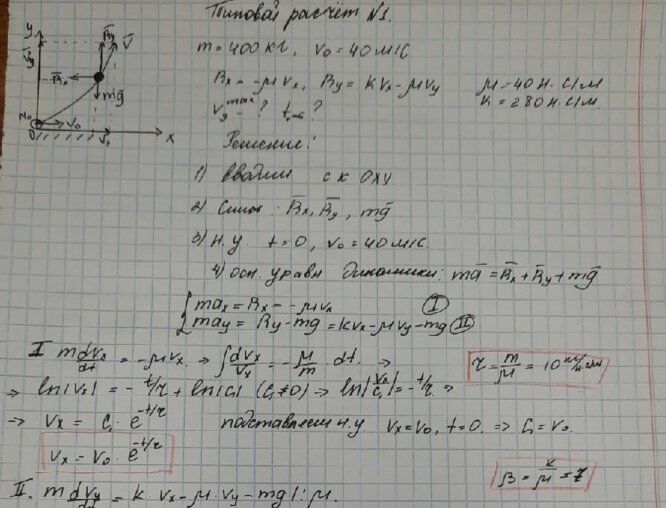 Типовой расчёт №1.
m = 400 кг, v₀ = 40 м/с
Rx = -μvx, Ry = kvx - μvy
μ = 40 Н·с/м
k = 280 Н·с/м.
vy max = ? t = ?
Решение:
1) вводим ск Oxy
2) Силы: R̄x, R̄y, mḡ
3) н.у. t = 0, v₀ = 40 м/с.
4) осн. уравн динамики: mā = R̄x + R̄y + mḡ
max = Rx = -μvx (I)
may = Ry - mg = kvx - μvy - mg (II)
I m dvx/dt = -μvx ⇒ ∫dvx/vx = -μ/m dt. ⇒
τ = m/μ = 10
⇒ ln|vx| = -t/τ + ln|C₁| (C₁≠0) ⇒ ln|vx/C₁| = -t/τ ⇒
⇒ vx = C₁ · e^(-t/τ) подставляем н.у vx = v₀, t = 0. ⇒ C₁ = v₀.
vx = v₀ · e^(-t/τ)
β = k/μ = 7
II. m dvy/dt = k · vx - μ · vy - mg | : μ.
y
R̄y
V̄
R̄x
mḡ
v₀
O
vx
x